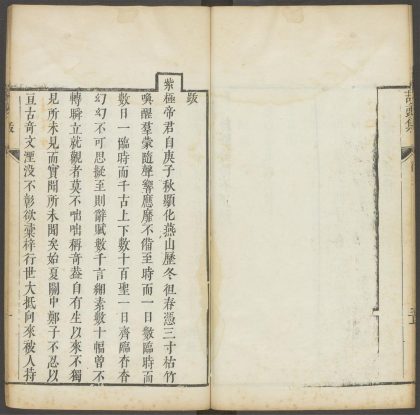 跋
紫極帝君自庚子秋顯化燕山歷冬但春憑三寸枯竹
喚醒羣蒙隨聲響應靡不偹至時而一日數臨時而
數日一臨時而千古上下數十百聖一日齊臨杳杳
幻幻不可思擬至則辭賦數千言縑素數十幅曾不
轉瞬立就觀者莫不咄咄稱奇葢自有生以來不獨
見所未見而實聞所未聞矣始夏關中鄭子不忍以
亘古奇文湮没不彰欲棗梓行世大抵向來被人持